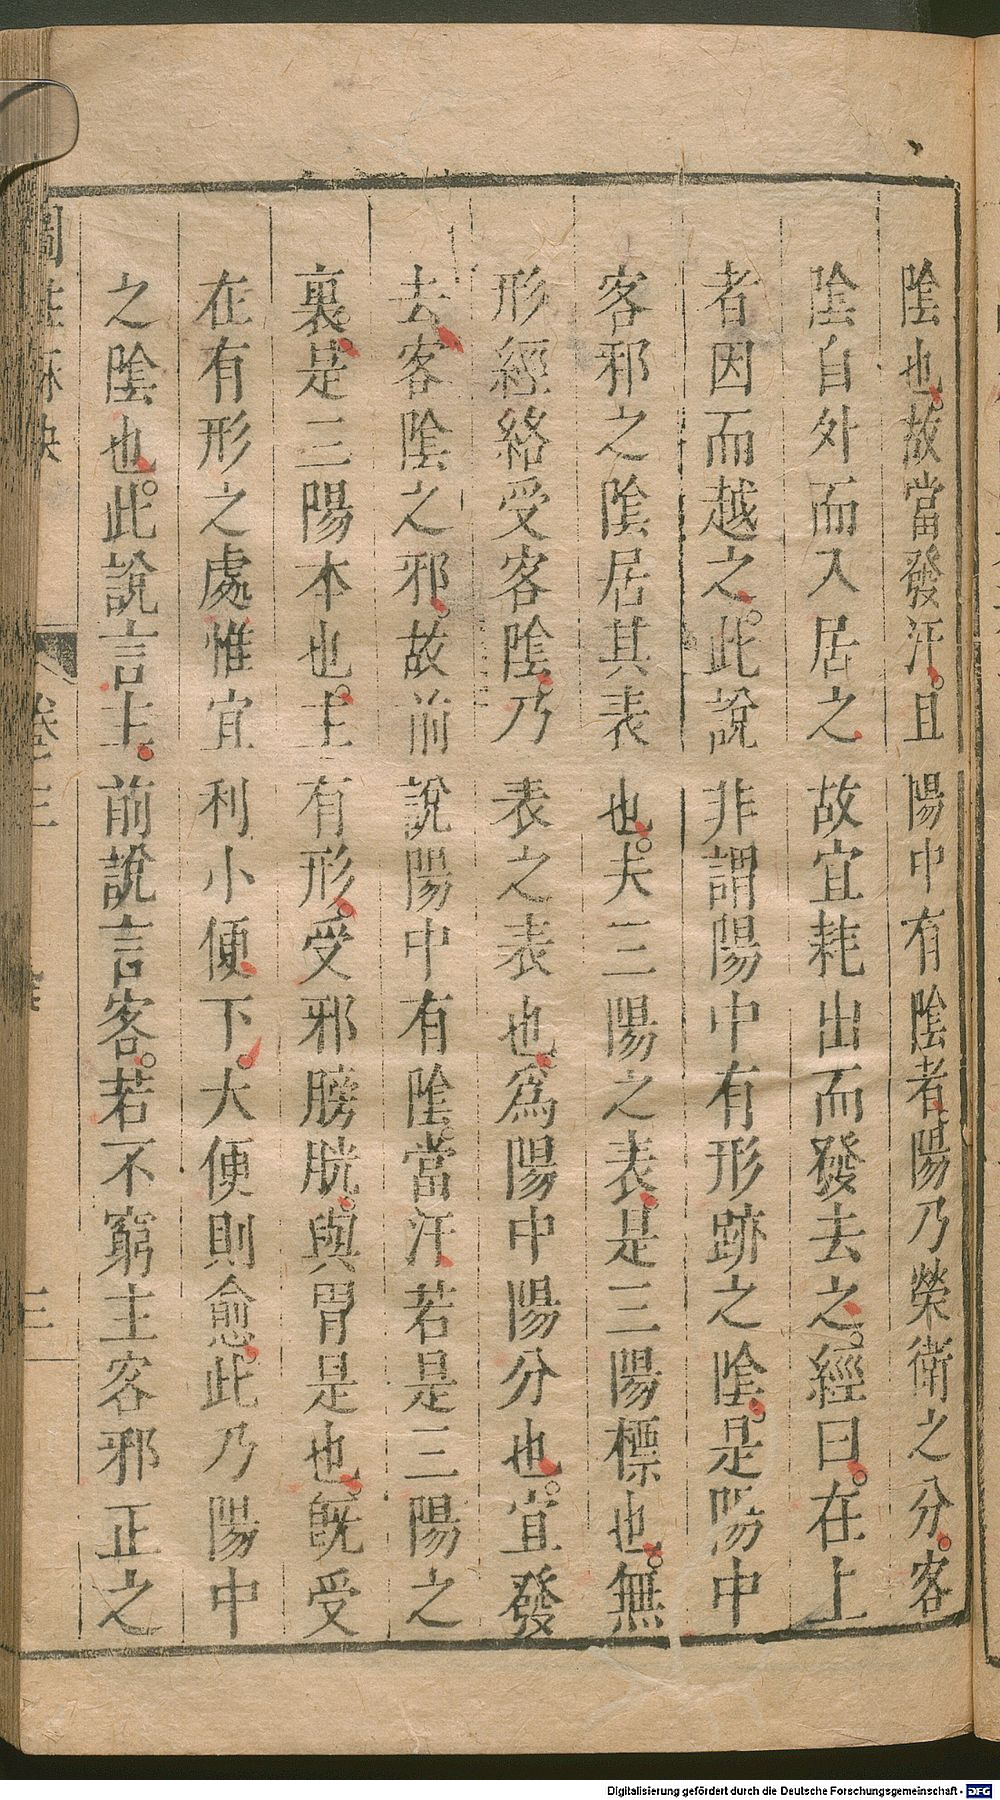 陰也故當發汗。且陽中有陰者陽乃榮衛之分。客
陰自外而入居之故宜耗出而發去之。經曰。在上
者因而越之。此說非謂陽中有形跡之陰。是陽中
客邪之陰居其表也。夫三陽之表。是三陽標也。無
形經絡受客陰。乃表之表也。爲陽中陽分也。宜發
去客陰之邪。故前說陽中有陰。當汗。若是三陽之
裏。是三陽本也。主有形。受邪膀胱。與胃是也。旣受
在有形之處惟宜利小便下。大便則愈。此乃陽中
之陰也。此說言主。前說言客。若不窮主客邪正之
卷三
三
Digitalisierung gefördert durch die Deutsche Forschungsgemeinschaft - DFG